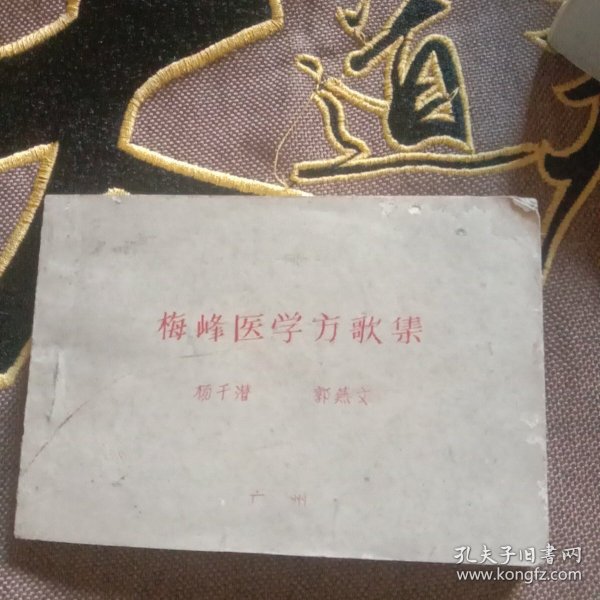 道
梅峰医学方歌集
杨千潜 郭燕文
广州
孔夫子旧书网
www.kongfz.com